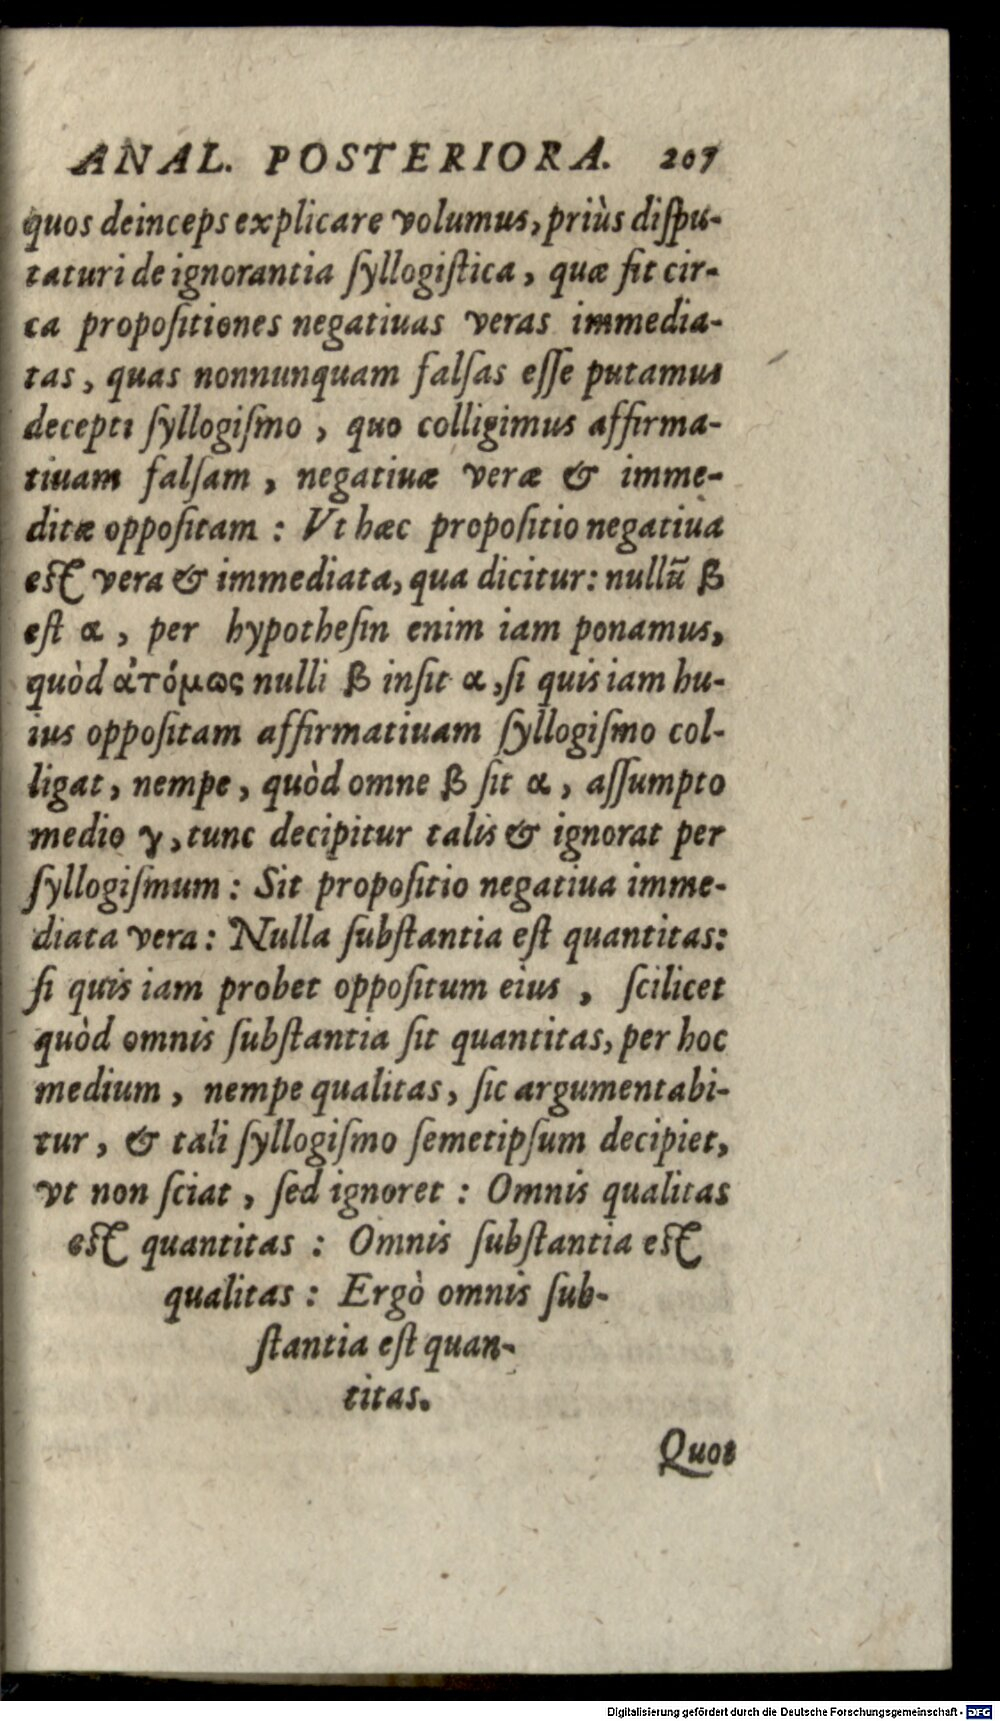 ANAL. POSTERIORA. 207
quos deinceps explicare volumus, priùs diſpu-
taturi de ignorantia ſyllogiſtica, quæ fit cir-
ca propoſitiones negatiuas veras immedia-
tas, quas nonnunquam falſas eſſe putamus
decepti ſyllogiſmo, quo colligimus affirma-
tiuam falſam, negatiuæ veræ & imme-
ditæ oppoſitam : Vt hæc propoſitio negatiua
eſt vera & immediata, qua dicitur: nullū β
eſt α, per hypotheſin enim iam ponamus,
quòd ἀτόμως nulli β inſit α, ſi quis iam hu-
ius oppoſitam affirmatiuam ſyllogiſmo col-
ligat, nempe, quòd omne β ſit α, aſſumpto
medio γ, tunc decipitur talis & ignorat per
ſyllogiſmum : Sit propoſitio negatiua imme-
diata vera : Nulla ſubſtantia eſt quantitas:
ſi quis iam probet oppoſitum eius, ſcilicet
quòd omnis ſubſtantia ſit quantitas, per hoc
medium, nempe qualitas, ſic argumentabi-
tur, & tali ſyllogiſmo ſemetipſum decipiet,
vt non ſciat, ſed ignoret : Omnis qualitas
eſt quantitas : Omnis ſubſtantia eſt
qualitas : Ergò omnis ſub-
ſtantia eſt quan-
titas.
Quot
Digitalisierung gefördert durch die Deutsche Forschungsgemeinschaft - DFG